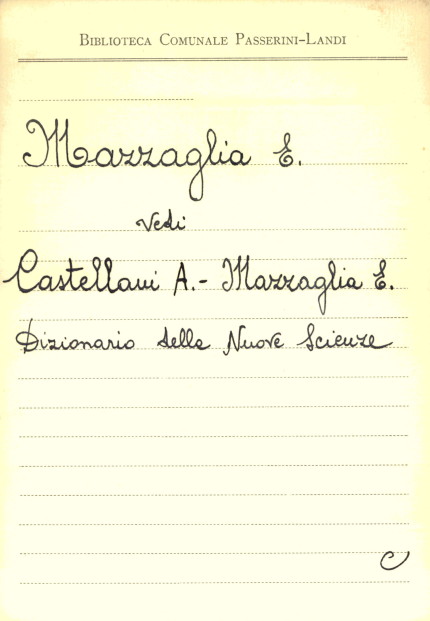 Biblioteca Comunale Passerini-Landi
Mazzaglia E.
Vedi
Castellani A. - Mazzaglia E.
Dizionario delle Nuove Scienze
C